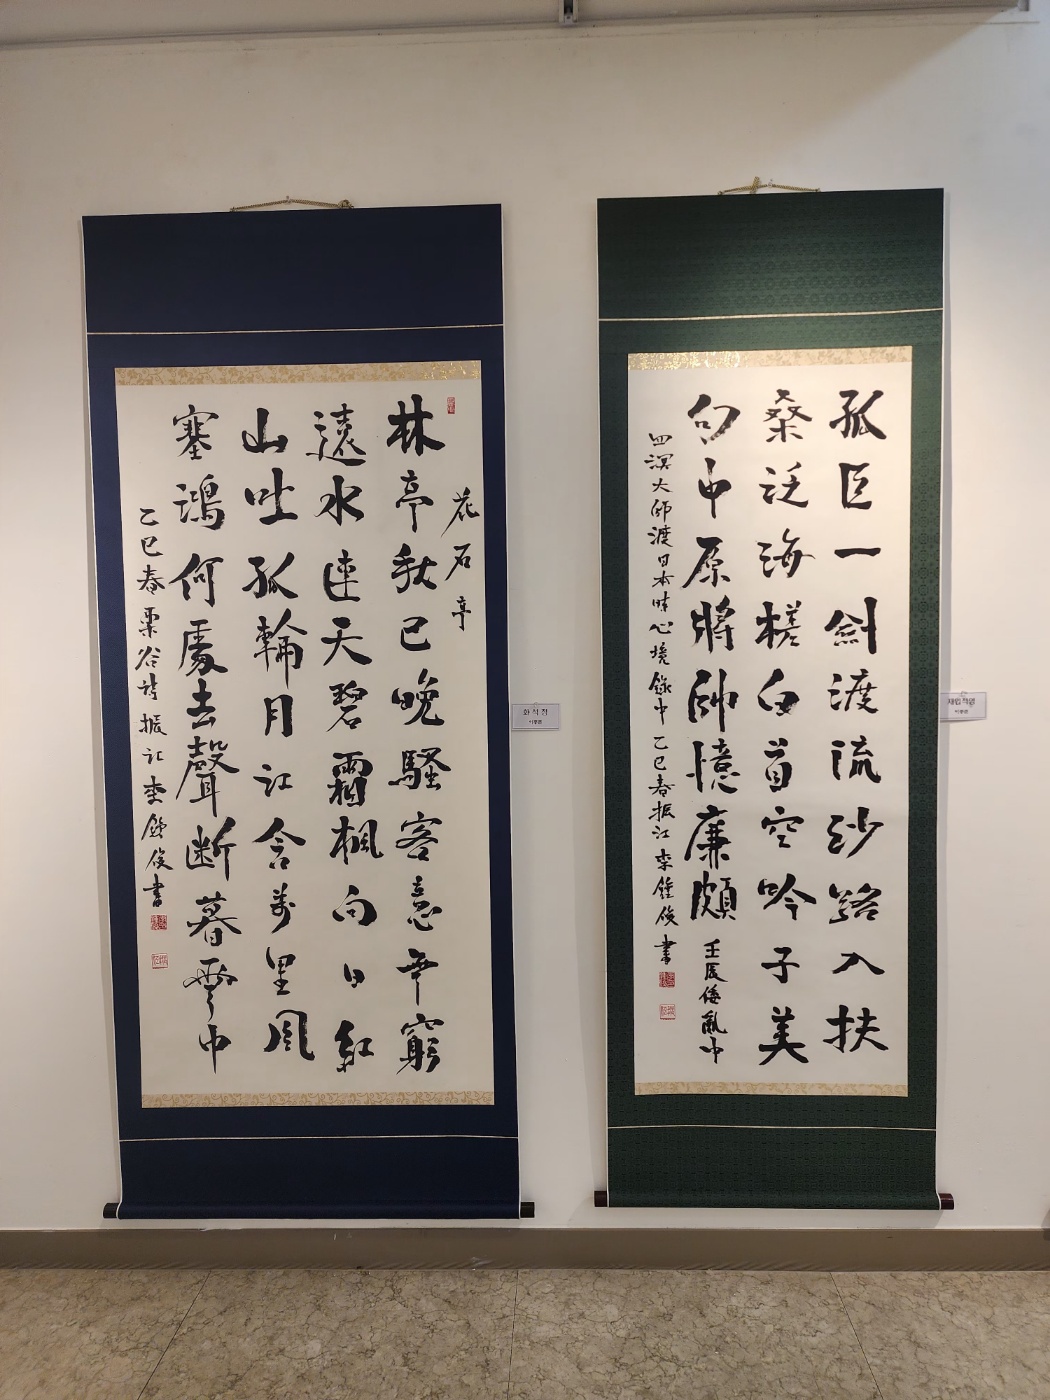 花石亭
林亭秋已晚騷客意無窮
遠水連天碧霜楓向日紅
山吐孤輪月江含萬里風
塞鴻何處去聲斷暮雲中
乙巳春栗谷詩振江李鍾俊書
화석정
孤臣一劍渡流沙路入扶
桑泛海槎白首空吟子美
句中原將帥憶廉頗 壬辰倭亂中
四溟大師渡日本時心境錄中 乙巳春振江李鍾俊書